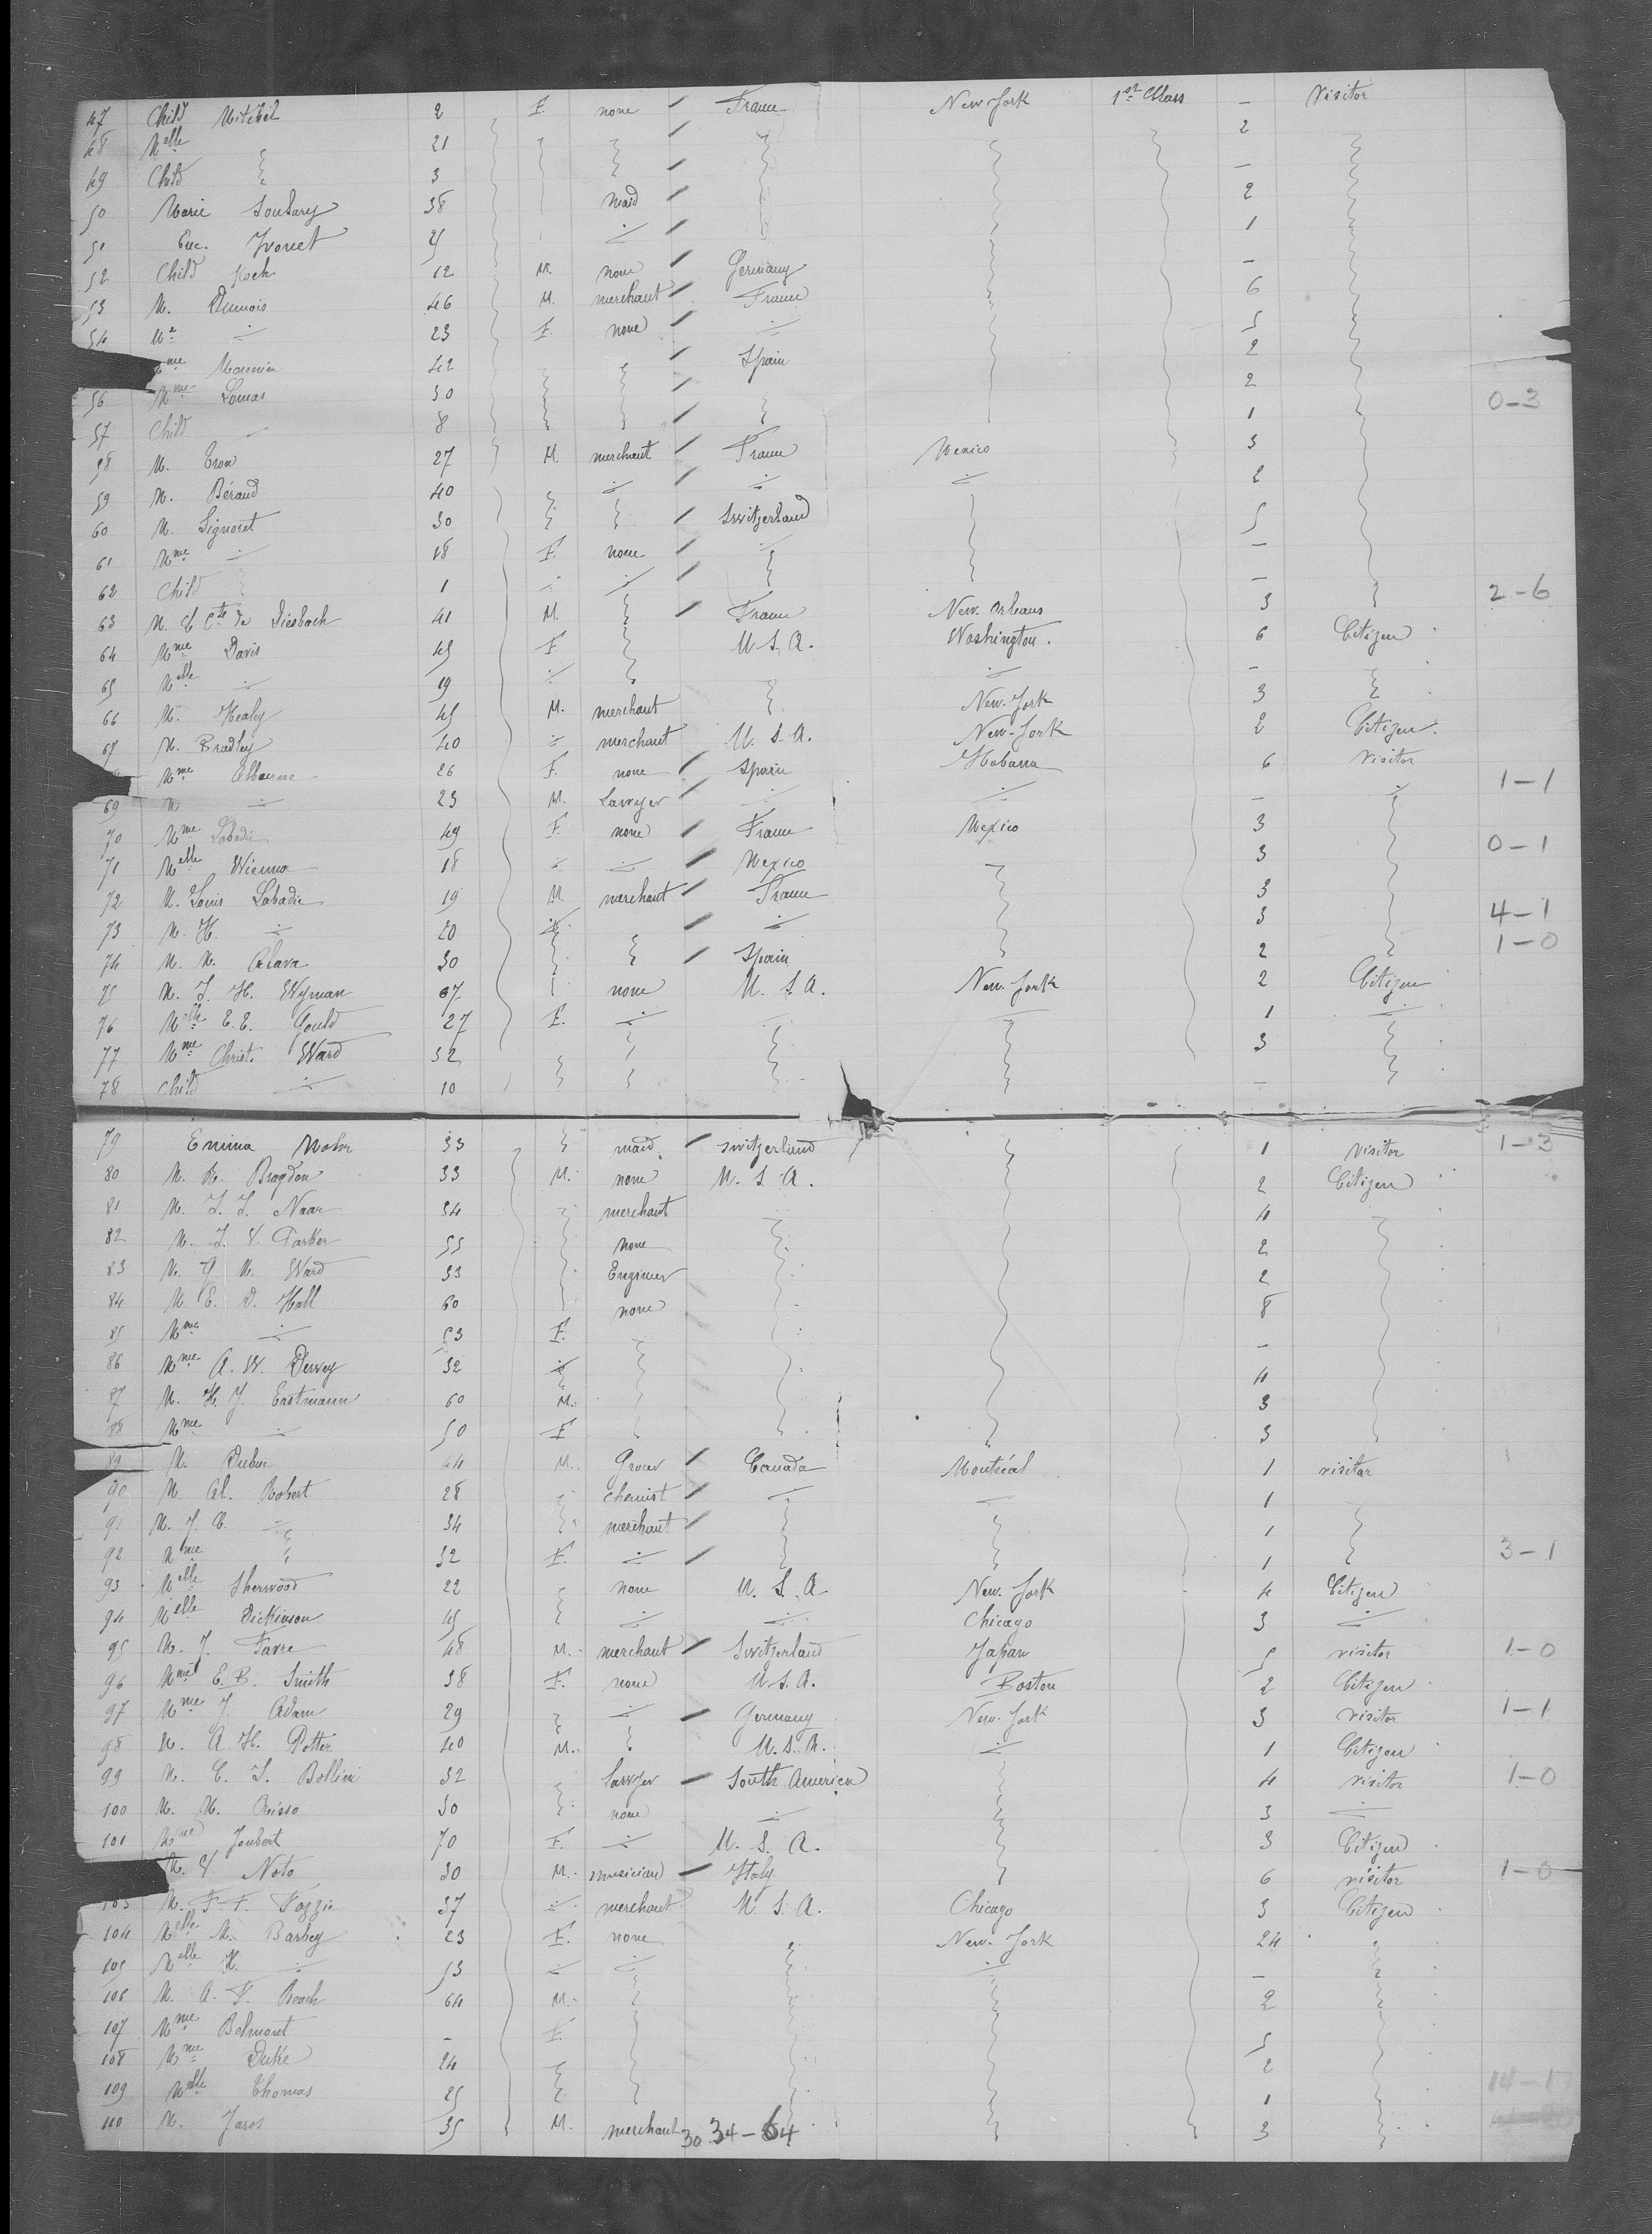 47 Child Mitchel 2 F. none / France New-York 1st Class — Visitor
48 Melle 21 / 2
49 Child 3 / —
50 Marie 38 maid / 2
51 Euc. Yvonet ÷ / 1
52 Child Koch 12 M. none / Germany —
53 M. Dumois 46 M. merchant / France 6
54 23 F. none / ÷ 5
me 42 / Spain 2
56 Mme Lomas 30 / 2 0-3
57 Child 8 / 1
58 M. Tron 27 M. merchant / France Mexico 3
59 M. Béraud 40 ÷ / ÷ ÷ 2
60 M. Signoret 30 / Switzerland 5
61 Mme ÷ 18 F. none / ÷ —
62 Child 1 ÷ ÷ / —
63 M. le Cte de Diesbach 41 M. / France New Orleans 3 2-6
64 Mme Davis 45 F. U.S.A. Washington. 6 Citizen
65 Melle ÷ 19 ÷ ÷ —
66 M. Healy 45 M. merchant New-York 3
67 M. Bradley 40 ÷ merchant U.S.A. New-York 2 Citizen.
Mme 26 F. none / Spain Habana 6 Visitor
69 M ÷ 23 M. Lawyer / ÷ ÷ — ÷ 1-1
70 Mme Labadie 49 F. none / France Mexico 3
71 Melle 18 ÷ ÷ / Mexico 3 0-1
72 M. Louis Labadie 19 M. merchant / France 3
73 M. H. ÷ 20 / ÷ 3 4-1
74 M. M. Alava 30 / Spain 2 1-0
75 M. J. H. Wyman 67 none U.S.A. New-York 2 Citizen
76 Melle E. E. Gould 27 F. ÷ ÷ ÷ 1 ÷
77 Mme Christ. Ward 32 3
78 Child ÷ 10 —
79 Emma Mohr 33 maid. / Switzerland 1 visitor 1-3
80 M. H. Bragdon 33 M. none U.S.A. 2 Citizen
81 M. J. J. Naar 34 merchant 4
82 M. J. V. Farker 55 none 2
83 M. G. M. Ward 33 Engineer 2
84 M E. D. Hall 60 none 8
85 Mme ÷ 53 F. —
86 Mme A. W. Dewey 32 4
87 M. H. J. Eastmann 60 M. 3
88 Mme ÷ 50 F. 3
89 M. Dubuc 44 M. Grocer / Canada Montréal 1 visitor
90 M. Al. Robert 28 chemist / ÷ ÷ 1
91 M. J. B. ÷ 34 merchant / 1
92 Mme 32 F. ÷ / 1 3-1
93 Melle Sherwood 22 none U.S.A New-York 4 Citizen
94 Melle Dickinson 45 ÷ ÷ Chicago 3 ÷
95 M. J. Favre 48 M. merchant / Switzerland Japan 5 visitor 1-0
96 Mme E. B. Smith 38 F. none U.S.A. Boston 2 Citizen
97 Mme J. Adam 29 ÷ / Germany New-York 3 visitor 1-1
98 M. A. H. Potter 40 M. U.S.A. ÷ 1 Citizen
99 M. C. J. Bollini 32 lawyer / South America 4 visitor 1-0
100 M. M. 30 none ÷ 3 ÷
101 Mme Joubert 70 F. ÷ U.S.A. 3 Citizen
M. V. Noto 30 M. musician / Italy 6 visitor 1-0
103 M. F. F. Fozzie 37 ÷ merchant U.S.A. Chicago 3 Citizen
104 Melle M. Barbey 23 F. none New-York 24
105 Melle H. ÷ 53 ÷ ÷ ÷ —
106 M. A. F. Beach 64 M. 2
107 Mme Belmont — F. 5
108 Mme Duke 24 2
109 Melle Thomas 25 1 14-17
110 M. Jaros 35 M. merchant 3
30 34-64